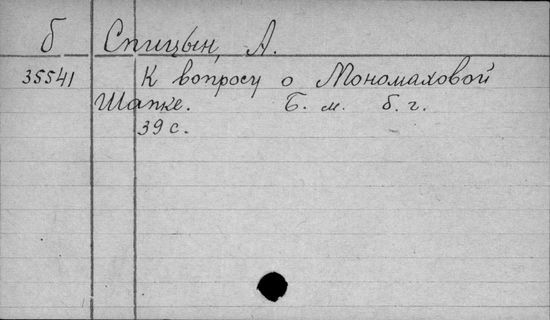 б Спицын, А.
35541 К вопросу о Мономаховой
Шапке. Б. м. б. г.
39 с.